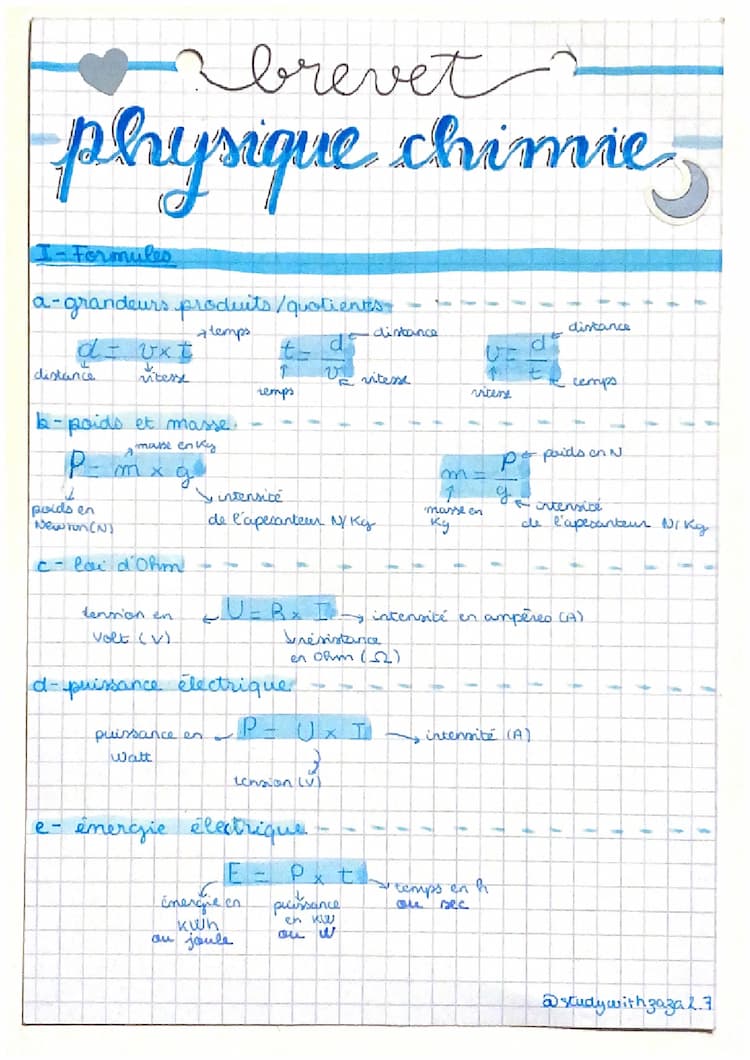 brevet
physique chimie
I - Formules
a - grandeurs produits/quotients
temps
d = v x t
distance
vitesse
distance
t = d
v
vitesse
temps
distance
v = d
t
temps
vitesse
b - poids et masse
masse en Kg
P = m x g
poids en
Newton (N)
intensité
de l'apesanteur N/Kg
poids en N
m = P
g
masse en
Kg
intensité
de l'apesanteur N/Kg
c - loi d'Ohm
tension en
Volt (V)
U = R x I
intensité en ampères (A)
résistance
en Ohm (Ω)
d - puissance électrique
puissance en
Watt
P = U x I
intensité (A)
tension (V)
e - énergie électrique
E = P x t
temps en h
ou sec
énergie en
KWh
ou joule
puissance
en KW
ou W
@studywithzaza2.7